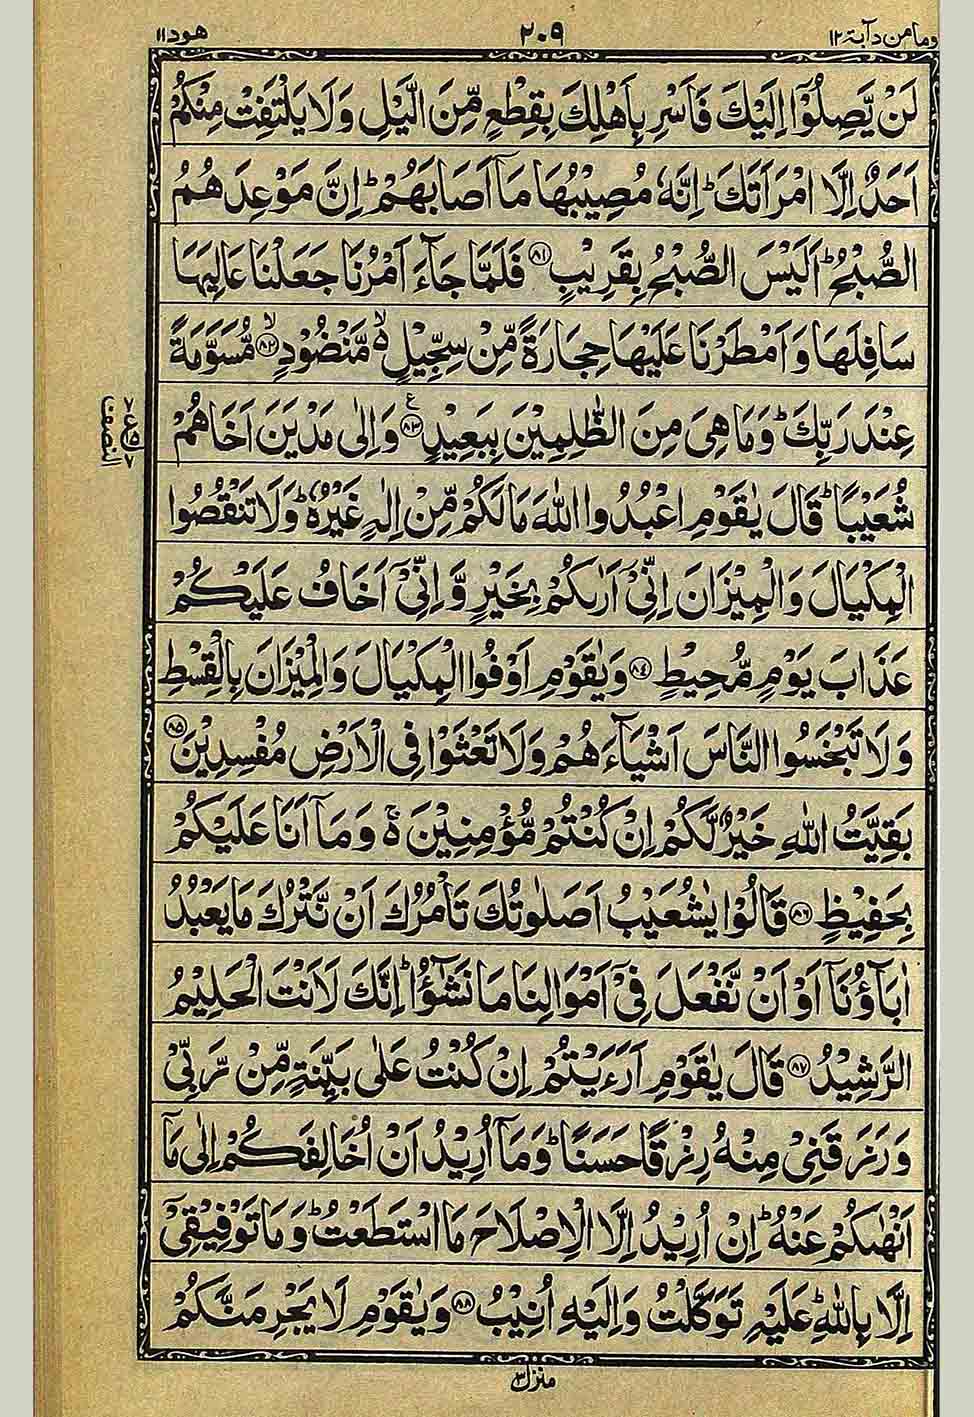 ومامن دآبة ١٢ ٢٠٩ هود ١١
لَنْ يَّصِلُوْٓا اِلَيْكَ فَاَسْرِ بِاَهْلِكَ بِقِطْعٍ مِّنَ الَّيْلِ وَلَا يَلْتَفِتْ مِنْكُمْ
اَحَدٌ اِلَّا امْرَاَتَكَ ؕ اِنَّهٗ مُصِيْبُهَا مَآ اَصَابَهُمْ ؕ اِنَّ مَوْعِدَهُمُ
الصُّبْحُ ؕ اَلَيْسَ الصُّبْحُ بِقَرِيْبٍ ﴿٨١﴾ فَلَمَّا جَآءَ اَمْرُنَا جَعَلْنَا عَالِيَهَا
سَافِلَهَا وَاَمْطَرْنَا عَلَيْهَا حِجَارَةً مِّنْ سِجِّيْلٍ ۙ۬ مَّنْضُوْدٍ ﴿٨٢﴾ۙ مُّسَوَّمَةً
عِنْدَ رَبِّكَ ؕ وَمَا هِىَ مِنَ الظّٰلِمِيْنَ بِبَعِيْدٍ ﴿٨٣﴾ ع وَاِلٰى مَدْيَنَ اَخَاهُمْ
شُعَيْبًا ؕ قَالَ يٰقَوْمِ اعْبُدُوا اللّٰهَ مَا لَكُمْ مِّنْ اِلٰهٍ غَيْرُهٗ ؕ وَلَا تَنْقُصُوا
الْمِكْيَالَ وَالْمِيْزَانَ اِنِّىْٓ اَرٰىكُمْ بِخَيْرٍ وَّاِنِّىْٓ اَخَافُ عَلَيْكُمْ
عَذَابَ يَوْمٍ مُّحِيْطٍ ﴿٨٤﴾ وَيٰقَوْمِ اَوْفُوا الْمِكْيَالَ وَالْمِيْزَانَ بِالْقِسْطِ
وَلَا تَبْخَسُوا النَّاسَ اَشْيَآءَهُمْ وَلَا تَعْثَوْا فِى الْاَرْضِ مُفْسِدِيْنَ ﴿٨٥﴾
بَقِيَّتُ اللّٰهِ خَيْرٌ لَّكُمْ اِنْ كُنْتُمْ مُّؤْمِنِيْنَ ۚ۬ وَمَآ اَنَا عَلَيْكُمْ
بِحَفِيْظٍ ﴿٨٦﴾ قَالُوْا يٰشُعَيْبُ اَصَلٰوتُكَ تَاْمُرُكَ اَنْ نَّتْرُكَ مَا يَعْبُدُ
اٰبَآؤُنَآ اَوْ اَنْ نَّفْعَلَ فِىْٓ اَمْوَالِنَا مَا نَشٰٓؤُا ؕ اِنَّكَ لَاَنْتَ الْحَلِيْمُ
الرَّشِيْدُ ﴿٨٧﴾ قَالَ يٰقَوْمِ اَرَءَيْتُمْ اِنْ كُنْتُ عَلٰى بَيِّنَةٍ مِّنْ رَّبِّىْ
وَرَزَقَنِىْ مِنْهُ رِزْقًا حَسَنًا ؕ وَمَآ اُرِيْدُ اَنْ اُخَالِفَكُمْ اِلٰى مَآ
اَنْهٰىكُمْ عَنْهُ ؕ اِنْ اُرِيْدُ اِلَّا الْاِصْلَاحَ مَا اسْتَطَعْتُ ؕ وَمَا تَوْفِيْقِىْٓ
اِلَّا بِاللّٰهِ ؕ عَلَيْهِ تَوَكَّلْتُ وَاِلَيْهِ اُنِيْبُ ﴿٨٨﴾ وَيٰقَوْمِ لَا يَجْرِمَنَّكُمْ
منزل ٣
النصف